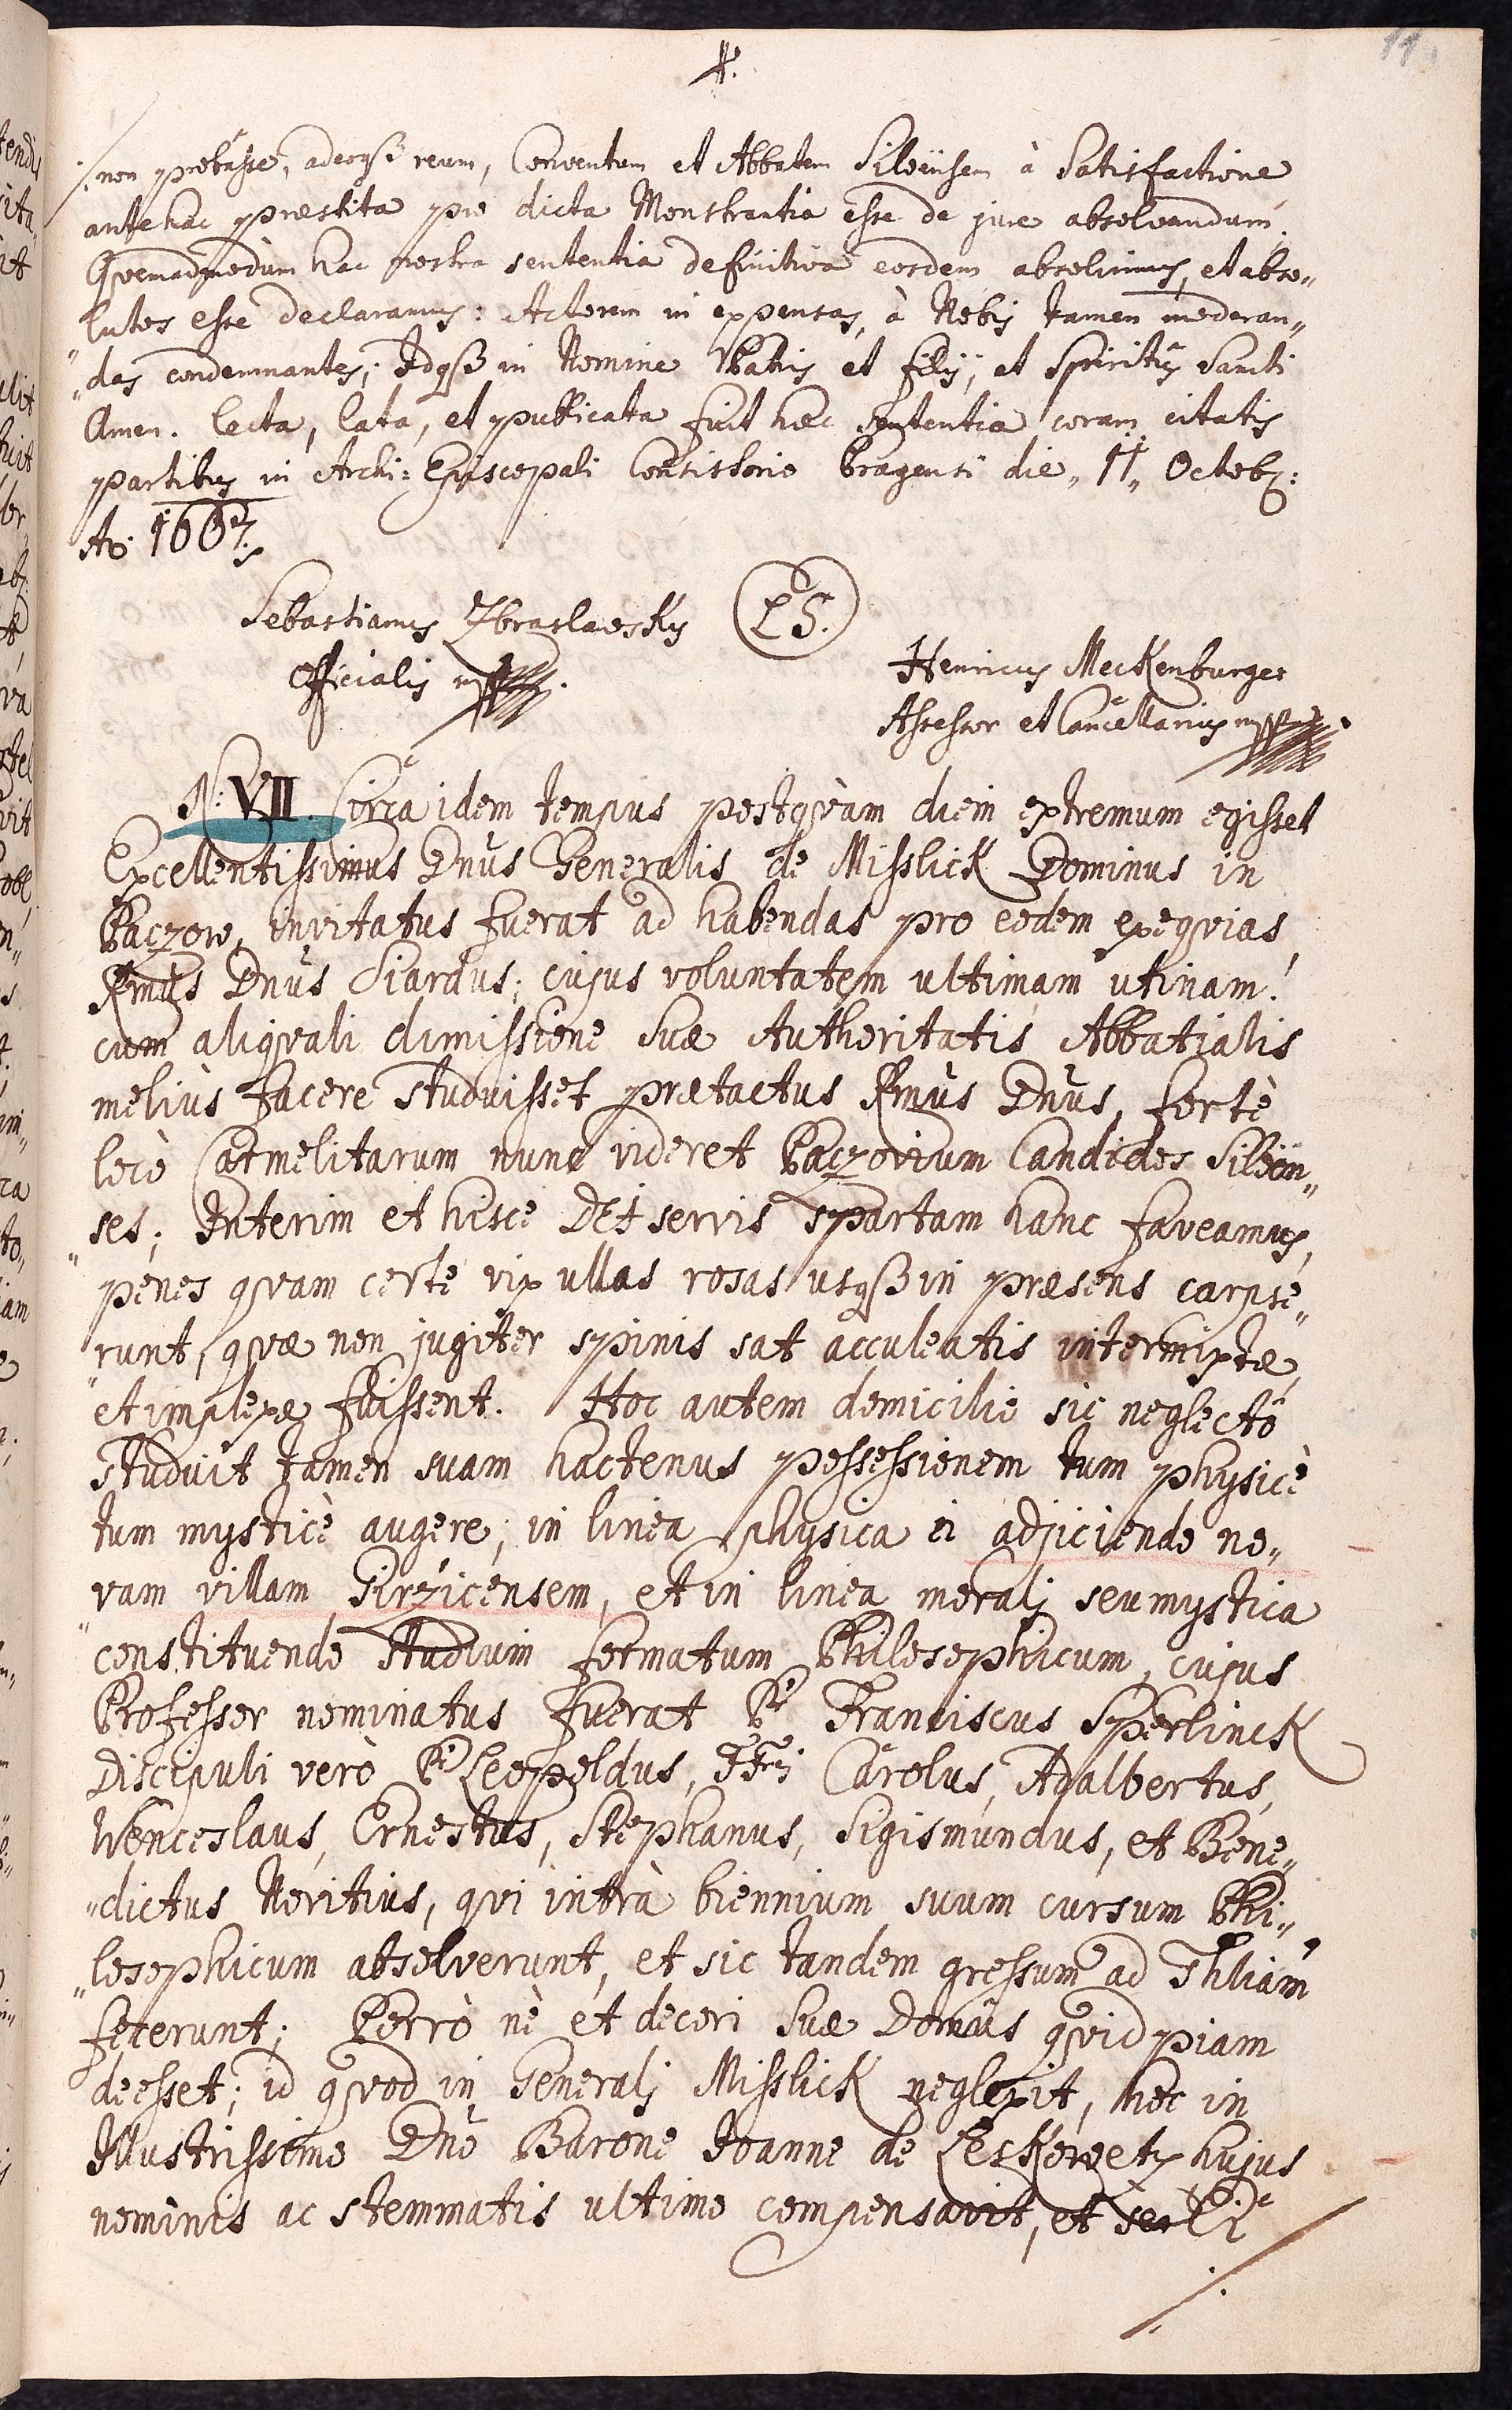 11
./. non probasse, adeoqß reum, Conventum et Abbatem Siloënsem à Satisfactione
antehac praestita pro dicta Monstrantia esse de jure absolvendum.
Qvemadmodùm hac nostra sententia definitiva eosdem absolvimus, et abso„
lutos esse declaramus: Actorem in expensas, à Nobis tamen moderan„
„das condemnantes; Idqß in Nomine Patris et filij, et Spiritûs Sancti
Amen. Lecta, lata, et publicata fuit haec sententia coram citatis
partibus in Archi: Episcopali Consistorio Pragensi die „11„ Octob:
Ao. 1667.
Sebastianus Zbraslavsky
Officialis mp.
LS.
Henricus Meckenburger
Assessor et Cancellarius mp.
N: VII. Circa idem tempus postqvàm diem extremum egisset
Excellentissimus Dnus Generalis de Misslick Dominus in
Paczow, invitatus fuerat ad habendas pro eodem exeqvias
Rmus Dnus Siardus; cujus voluntatem ultimam utinam!
cum aliqvali dimissione suae Authoritatis Abbatialis
meliùs facere studuisset praetactus Rmus Dnus, fortè
locò Carmelitarum nunc videret Paczovium Candidos Siloën„
„ses; Interim et hisce DEI servis spartam hanc faveamus,
penes qvam certe vix ullas rosas usqß in praesens carpse„
„runt, qvae non jugiter spinis sat acculeatis intermixtae,
et implexae fuissent. Hoc autem domicilio sic neglectô
studuit tamen suam hactenus possessionem tum physicè
tum mysticè augere; in linea physica ei adjiciendo no„
vam villam Girzicensem, et in linea morali seu mystica
constituendo studium formatum Philosophicum, cujus
Professor nominatus fuerat Pr Franciscus Sperlinck
Discipuli verò Pr Leopoldus, FFri Carolus, Adalbertus,
Wenceslaus, Ernestus, Stephanus, Sigismundus, et Bene„
„dictus Noritius, qvi intrà biennium suum cursum Phi„
„losophicum absolverunt, et sic tandem gressum ad Thliam
fecerunt; Porrò nè et decori suae Domûs qvid piam
deesset; id qvod in Generali Misslick neglexit, hoc in
Illustrissimo Dno Barone Joanne de Leskowetz hujus
nominis ac stemmatis ultimo compensavit, et
./.